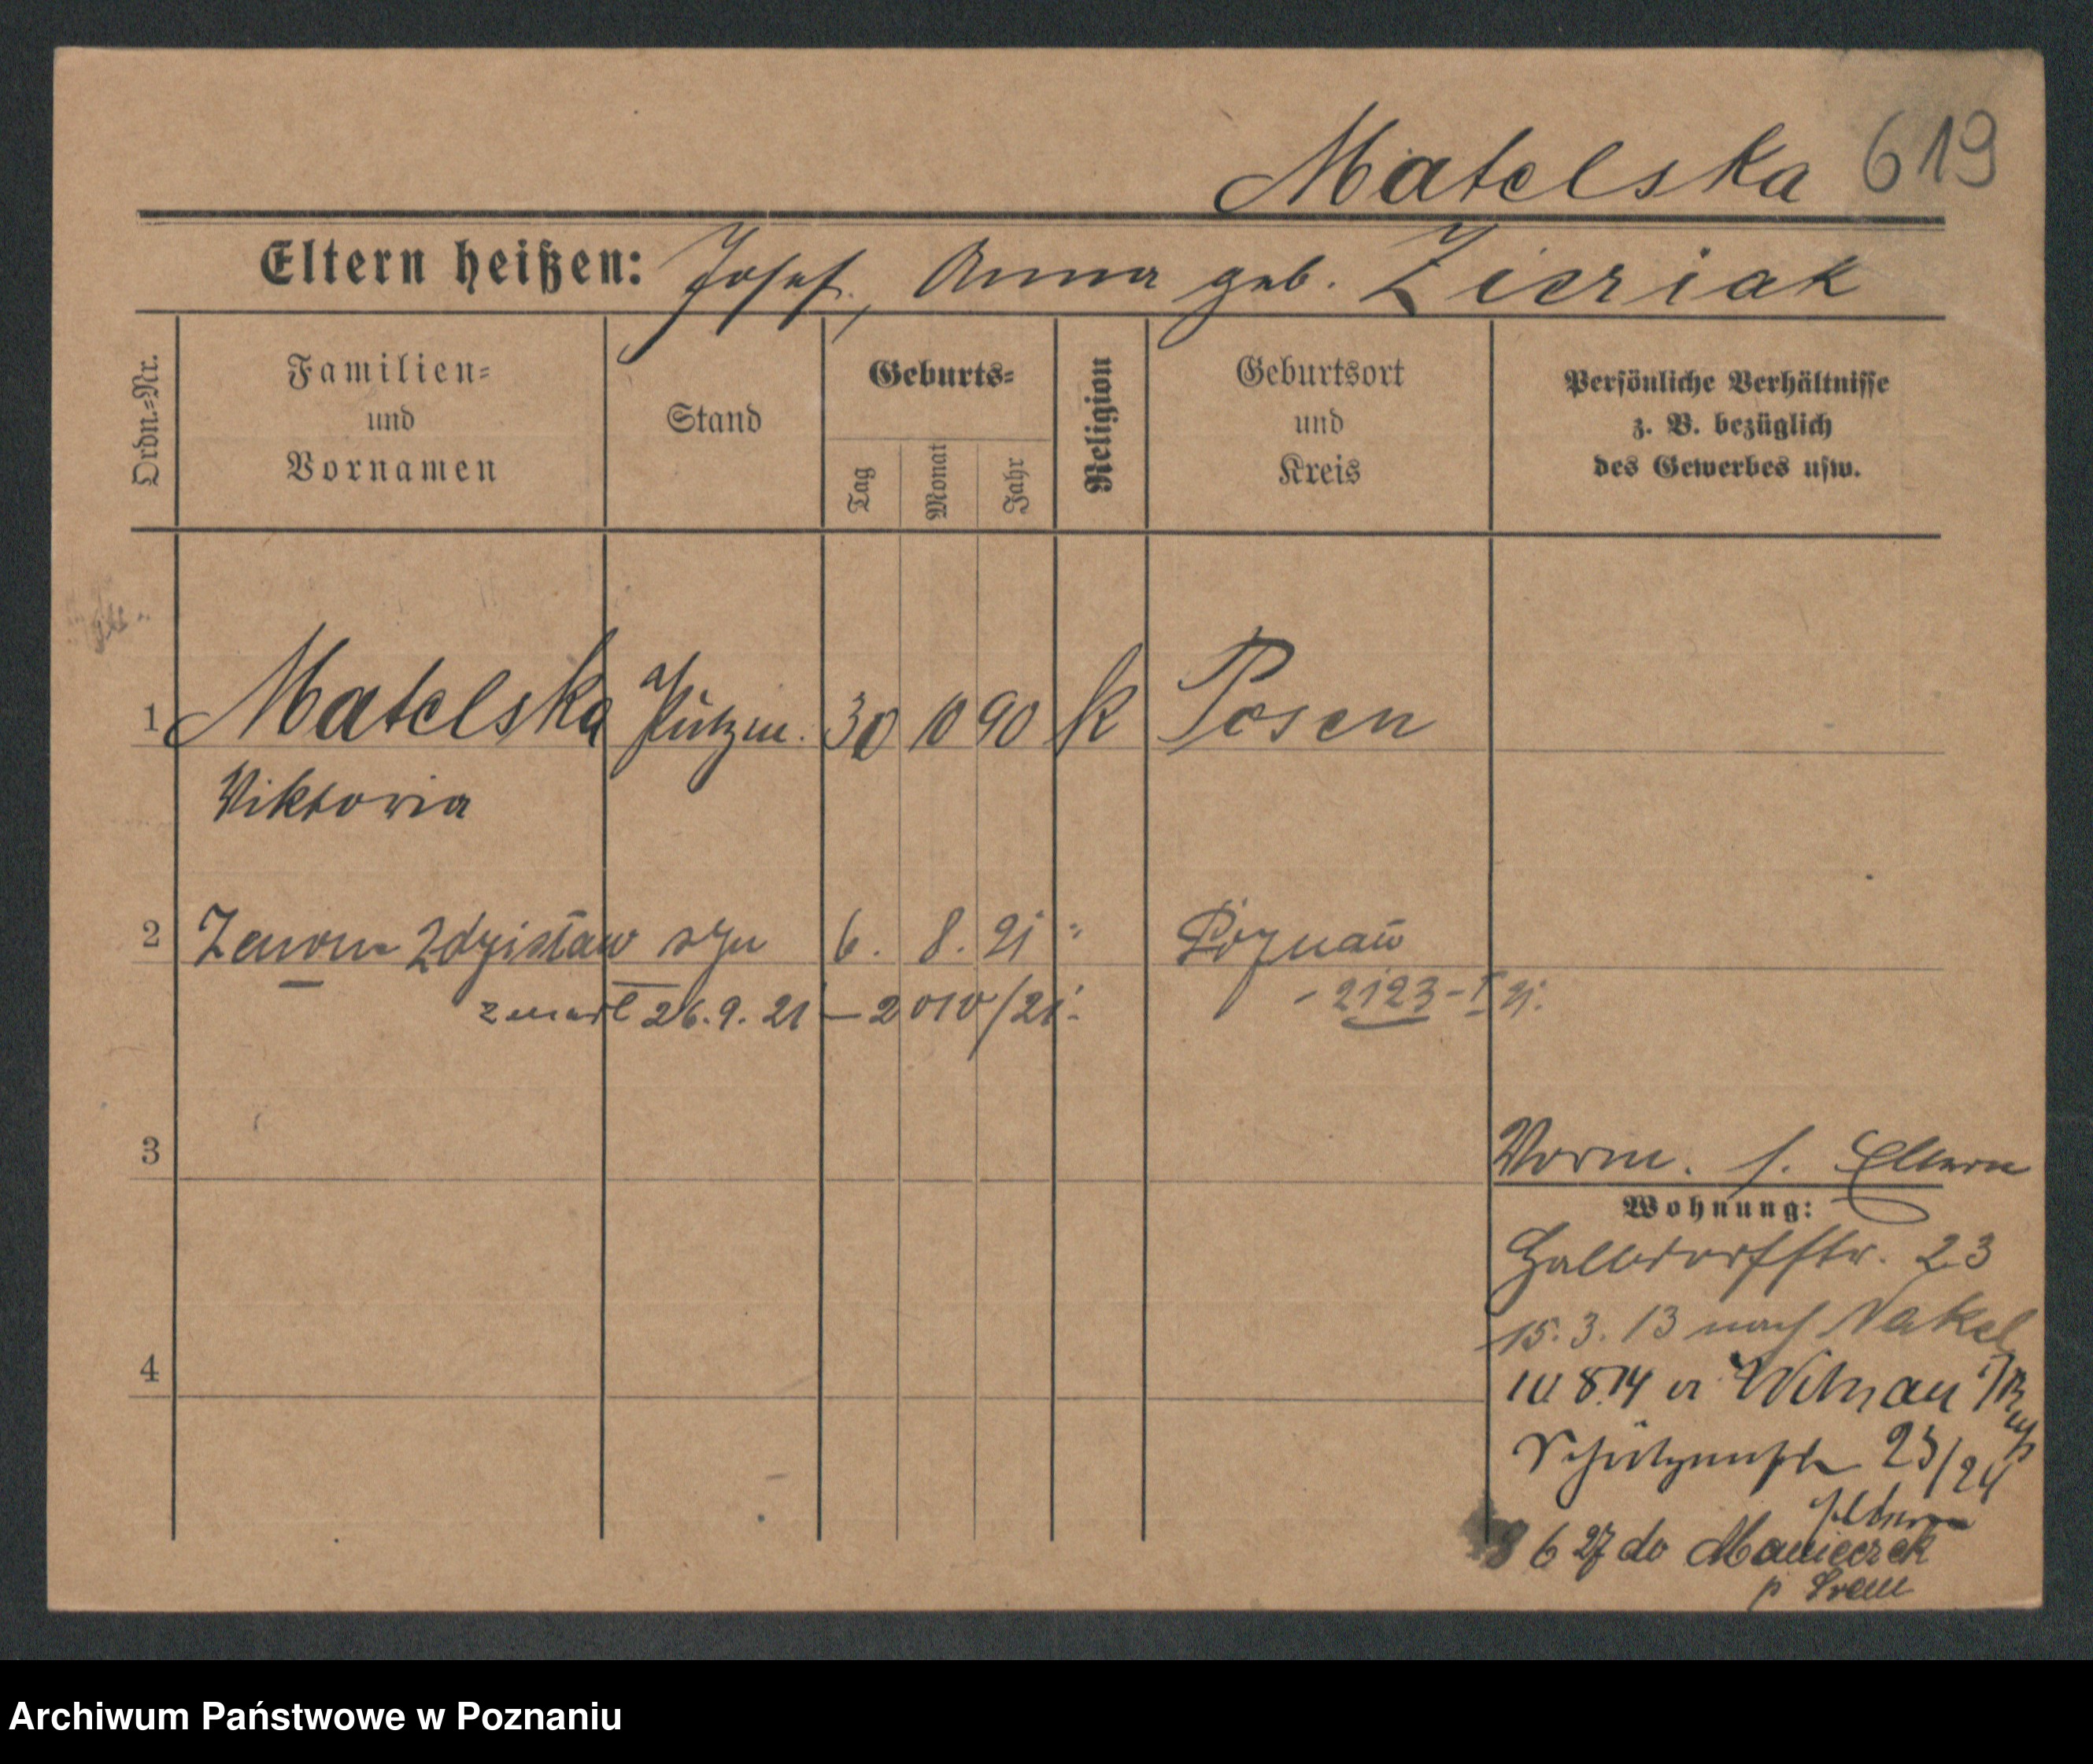 Matelska 619
Eltern heißen: Josef, Anna geb. Zieziak
Ordn.=Nr.
Familien=
und
Vornamen
Stand
Geburts=
Tag
Monat
Jahr
Religion
Geburtsort
und
Kreis
Persönliche Verhältnisse
z. B. bezüglich
des Gewerbes usw.
1 Matelska 30 10 90 k Posen
Viktoria
2 Zenon Zdzisław syn 6. 8. 21 " Poznań
zmarł 26.9.21 – 2010/21. - 2123 - I 21.
3
Vorm. s. Eltern
Wohnung:
Halbdorfstr. 23
15. 3. 13 nach Nakel
4
8.14 v
Schützenstr 23/24
Eltern
8 6 27 do Manieczek
p Śrem
Archiwum Państwowe w Poznaniu